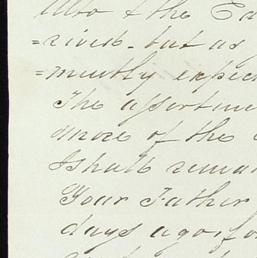 & the
=rived - but as
=mently expec
The assortme
more of the
I shall remai
Your Father
days ago, fo